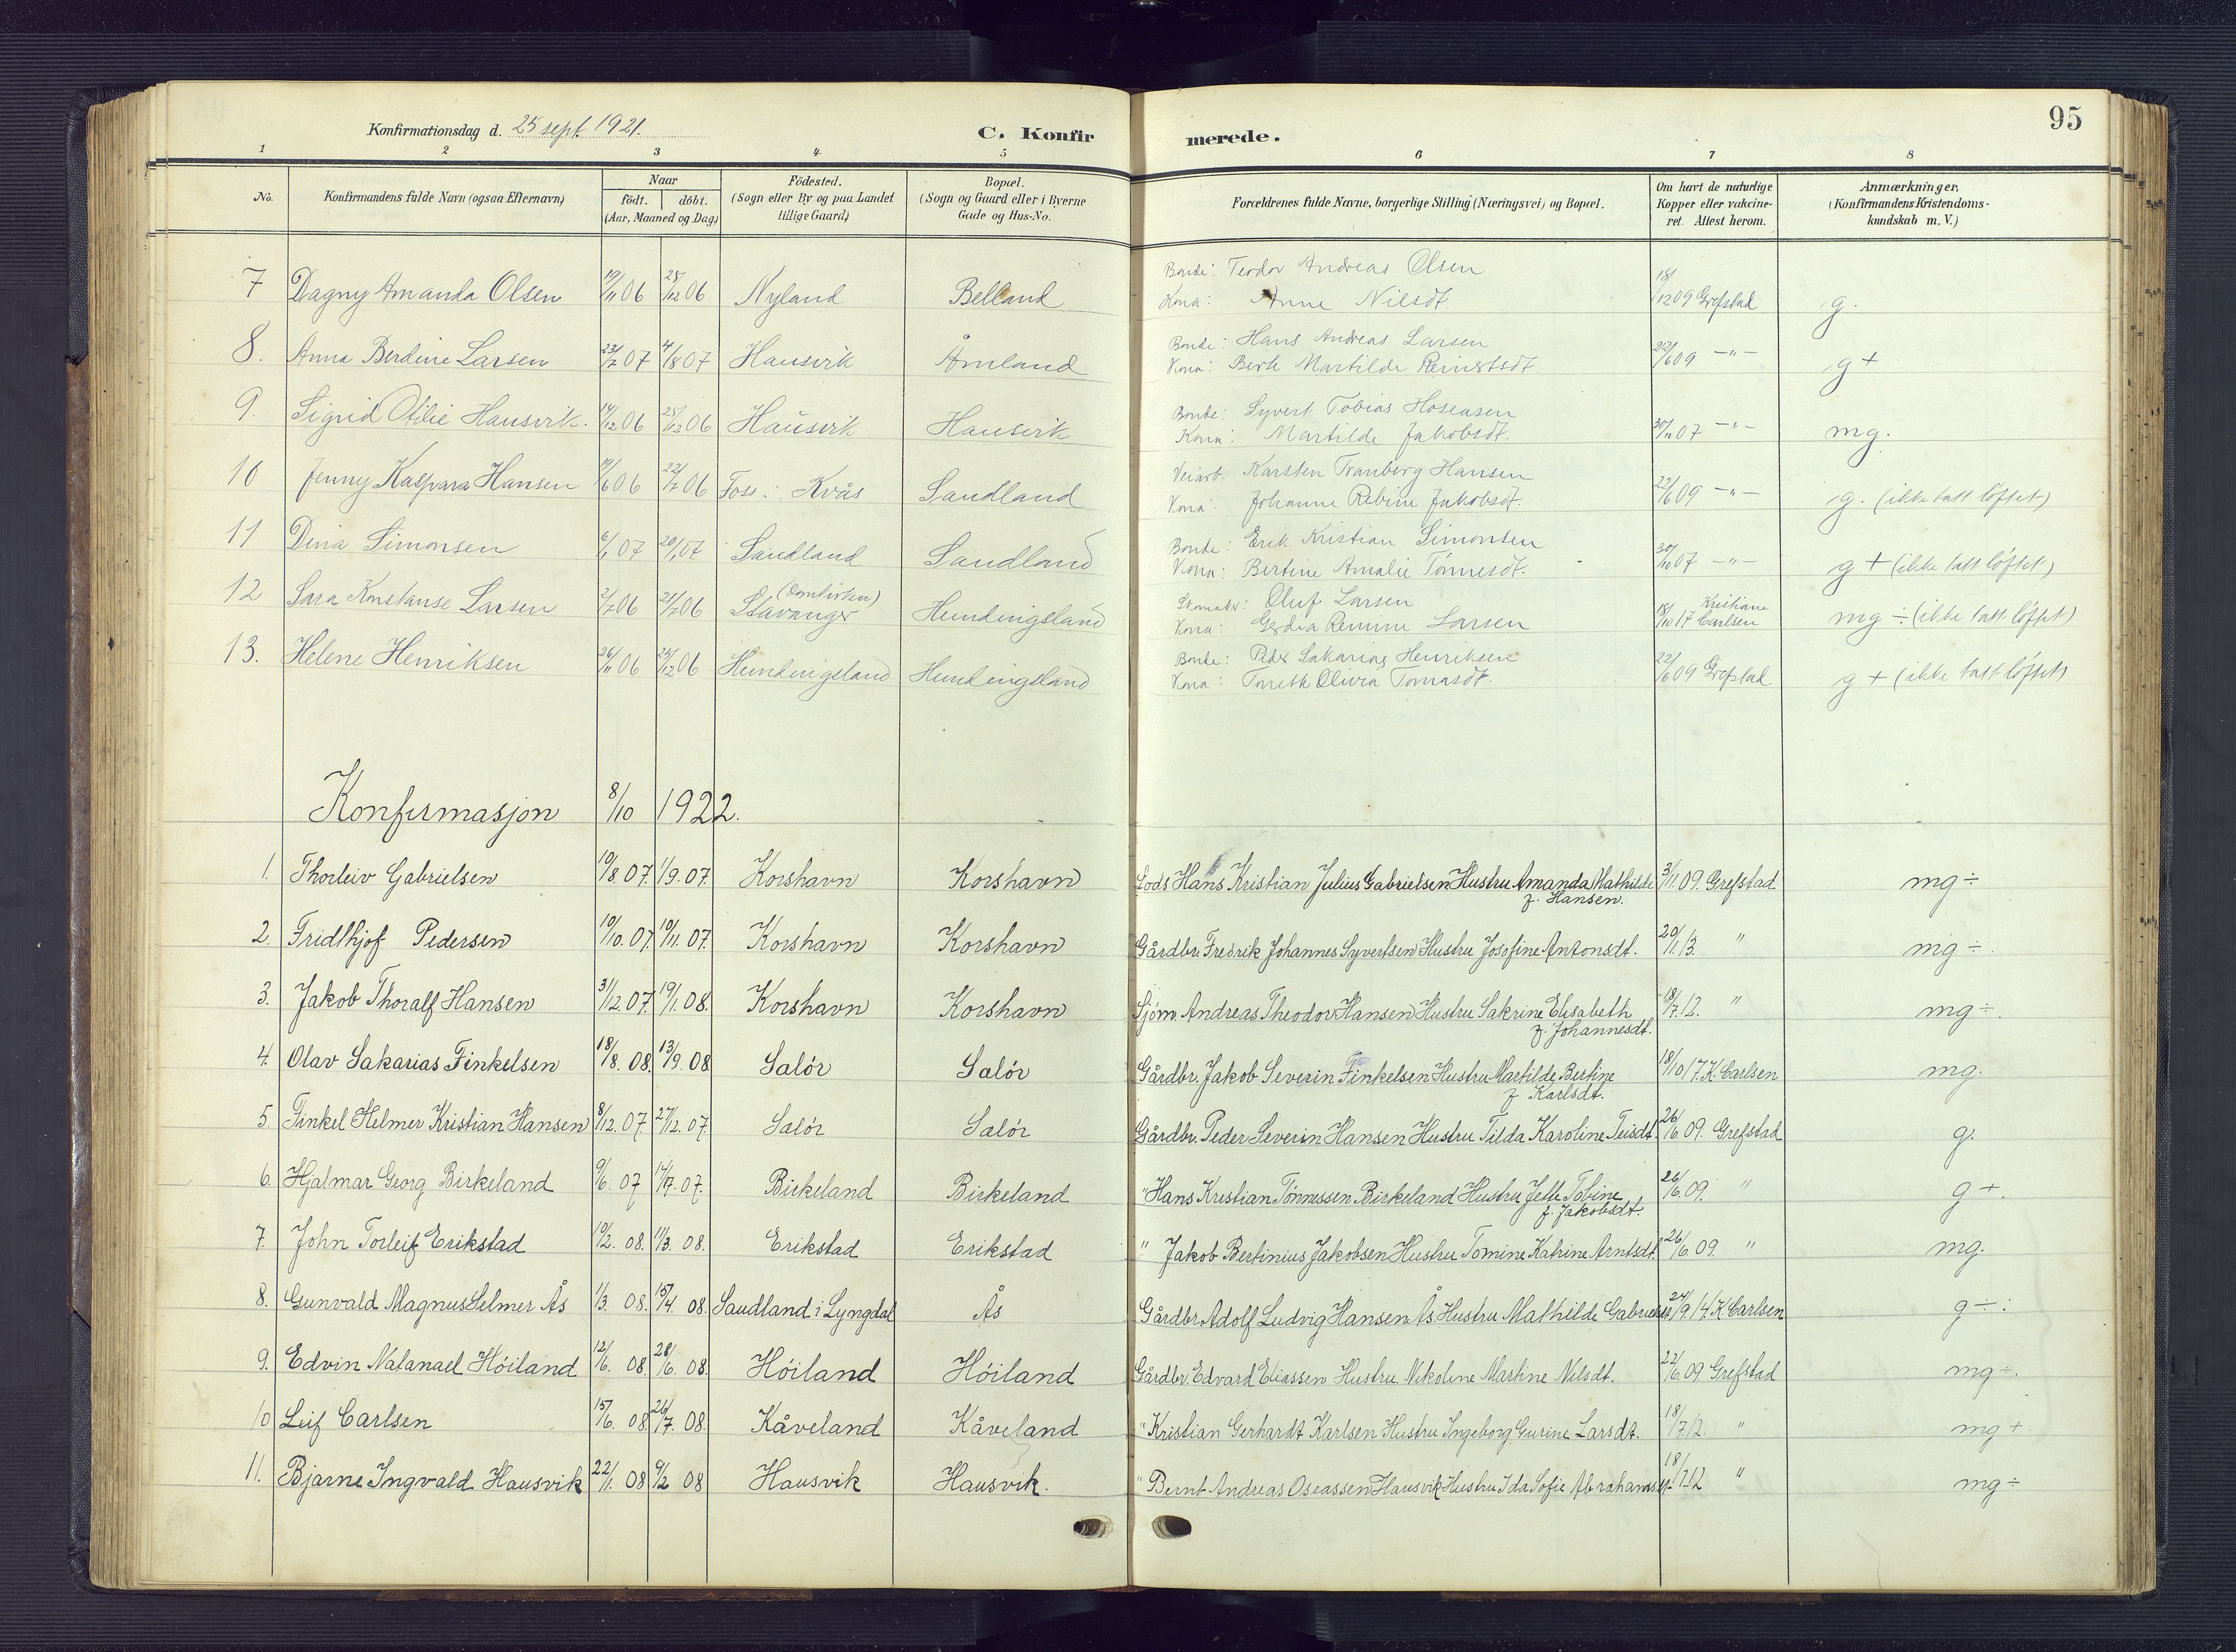 95
Konfirmationsdag d. 25 sept. 1921.
C. Konfirmerede.
1 2 3 4 5 6 7 8
No. Konfirmandens fulde Navn (ogsaa Efternavn) Naar födt. döbt. (Aar, Maaned og Dag) Födested. (Sogn eller By og paa Landet tillige Gaard) Bopæl. (Sogn og Gaard eller i Byerne Gade og Hus-No. Forældrenes fulde Navne, borgerlige Stilling (Næringsvei) og Bopæl. Om havt de naturlige Kopper eller vakcineret. Attest herom. Anmærkninger, (Konfirmandens Kristendomskundskab m. V.)
7 Dagny Amanda Olsen 19/11 06 28/12 06 Nyland Belland Bonde: Teodor Andreas Olsen 18/12 09 Grefstad g.
Kona: Anne Nilsdt.
8. Anna Berdine Larsen 23/7 07 4/8 07 Hausvik Åmland Bonde: Hans Andreas Larsen 22/6 09 -"- g +
Kona: Berte Martilde Reinertsdt.
9. Sigrid Otilie Hausvik. 14/12 06 28/12 06 Hausvik Hausvik Bonde: Syvert Tobias Hoseasen 30/11 07 -"- mg.
Kona: Martilde Jakobsdt.
10 Jenny Kaspara Hansen 19/6 06 22/7 06 Foss i Kvås Sandland Veiarb. Karsten Tranberg Hansen 22/6 09 -"- g. (ikke tatt löftet)
Kona: Johanne Rebine Jakobsdt.
11 Dina Simonsen 6/1 07 20/1 07 Sandland Sandland Bonde: Erik Kristian Simonsen 30/10 07 -"- g + (ikke tatt löftet)
Kona: Bertine Amalie Tönnesdt.
12 Sara Konstanse Larsen 2/7 06 21/7 06 (Domkirken) Stavanger Hundingsland Skomaker: Oluf Larsen 18/10 17 Kristiane Carlsen mg ÷ (ikke tatt löftet)
Kona: Gerdia Larsen
13. Helene Henriksen 26/11 06 25/12 06 Hundingsland Hundingsland Bonde: Peder Sakarias Henriksen 22/6 09 Grefstad g + (ikke tatt löftet)
Kona: Olivia Tomasdt.
Konfirmasjon 8/10 1922.
1. Thorleiv Gabrielsen 19/8. 07. 1/9. 07. Korshavn Korshavn Lods Hans Kristian Julius Gabrielsen Hustru Amanda Mathilde 3/11. 09. Grefstad mg ÷
f. Hansen.
2. Fridthjof Pedersen 19/10. 07. 10/11. 07. Korshavn Korshavn Gårdbr. Fredrik Johannes Syvertsen Hustru Josofine Antonsdt. 20/1. 13. " mg ÷.
3. Jakob Thoralf Hansen 31/12. 07. 19/1. 08. Korshavn Korshavn Sjöm. Andreas Theodor Hansen Hustru Sakrine Elisabeth 18/7. 12. " mg ÷.
f. Johannesdt.
4. Olav Sakarias Finkelsen 18/8. 08. 13/9. 08 Salör Salör Gårdbr. Jakob Severin Finkelsen Hustru Martilde Bertine 18/10 17. K. Carlsen mg.
f Karlsdt.
5. Finkel Helmer Kristian Hansen 8/12. 07. 27/12. 07. Salör Salör Gårdbr. Peder Severin Hansen Hustru Tilda Karoline Teisdt. 26/6. 09. Grefstad g.
6. Hjalmar Georg Birkeland 9/6. 07 14/7. 07. Birkeland Birkeland " Hans Kristian Tönnessen Birkeland Hustru Jette Tobine 26/6. 09. " g +.
f. Jakobsdt.
7. John Torleif Erikstad 19/2. 08. 11/3. 08. Erikstad Erikstad " Jakob Bertinius Jakobsen Hustru Tomine Katrine Arntsdt. 26/6 09. " mg.
8. Gunvald Magnus Selmer Ås 1/3. 08. 15/4. 08. Sandland i Lyngdal Ås Gårdbr. Adolf Ludvig Hansen Ås Hustru Mathilde 24/9 14. K. Carlsen g ÷.
9. Edvin Natanael Höiland 12/6. 08. 28/6. 08. Höiland Höiland Gårdbr. Edvard Eliassen Hustru Nikoline Martine Nilsdt. 22/6. 09 Grefstad mg ÷.
10 Leif Carlsen 15/6. 08. 26/7. 08. Kåveland Kåveland " Kristian Gerhardt Karlsen Hustru Ingeborg Gurine Larsdt. 18/7. 12. " mg +.
11. Bjarne Ingvald Hausvik 22/1. 08 9/2 08 Hausvik Hausvik. " Bernt Andreas Oseassen Hausvik Hustru Ida Sofie 18/7 12 " mg ÷